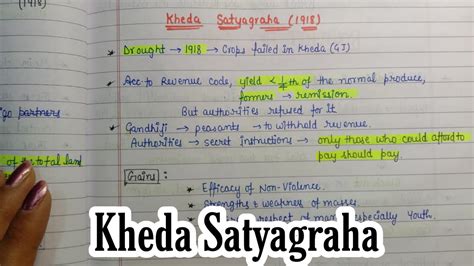 (1918)
Kheda Satyagraha (1918)
Drought → 1918 → Crops failed in Kheda (GJ)
Acc to Revenue Code, yield < 1/4th of the normal produce,
farmers → remission.
But authorities refused for it.
go partners
Gandhiji → peasants → to withhold revenue.
Authorities → secret instructions → only those who could afford to
pay should pay.
of total land
Gains:
Efficacy of Non-Violence.
Strengths & weakness of masses.
respect of many especially Youth.
Kheda Satyagraha